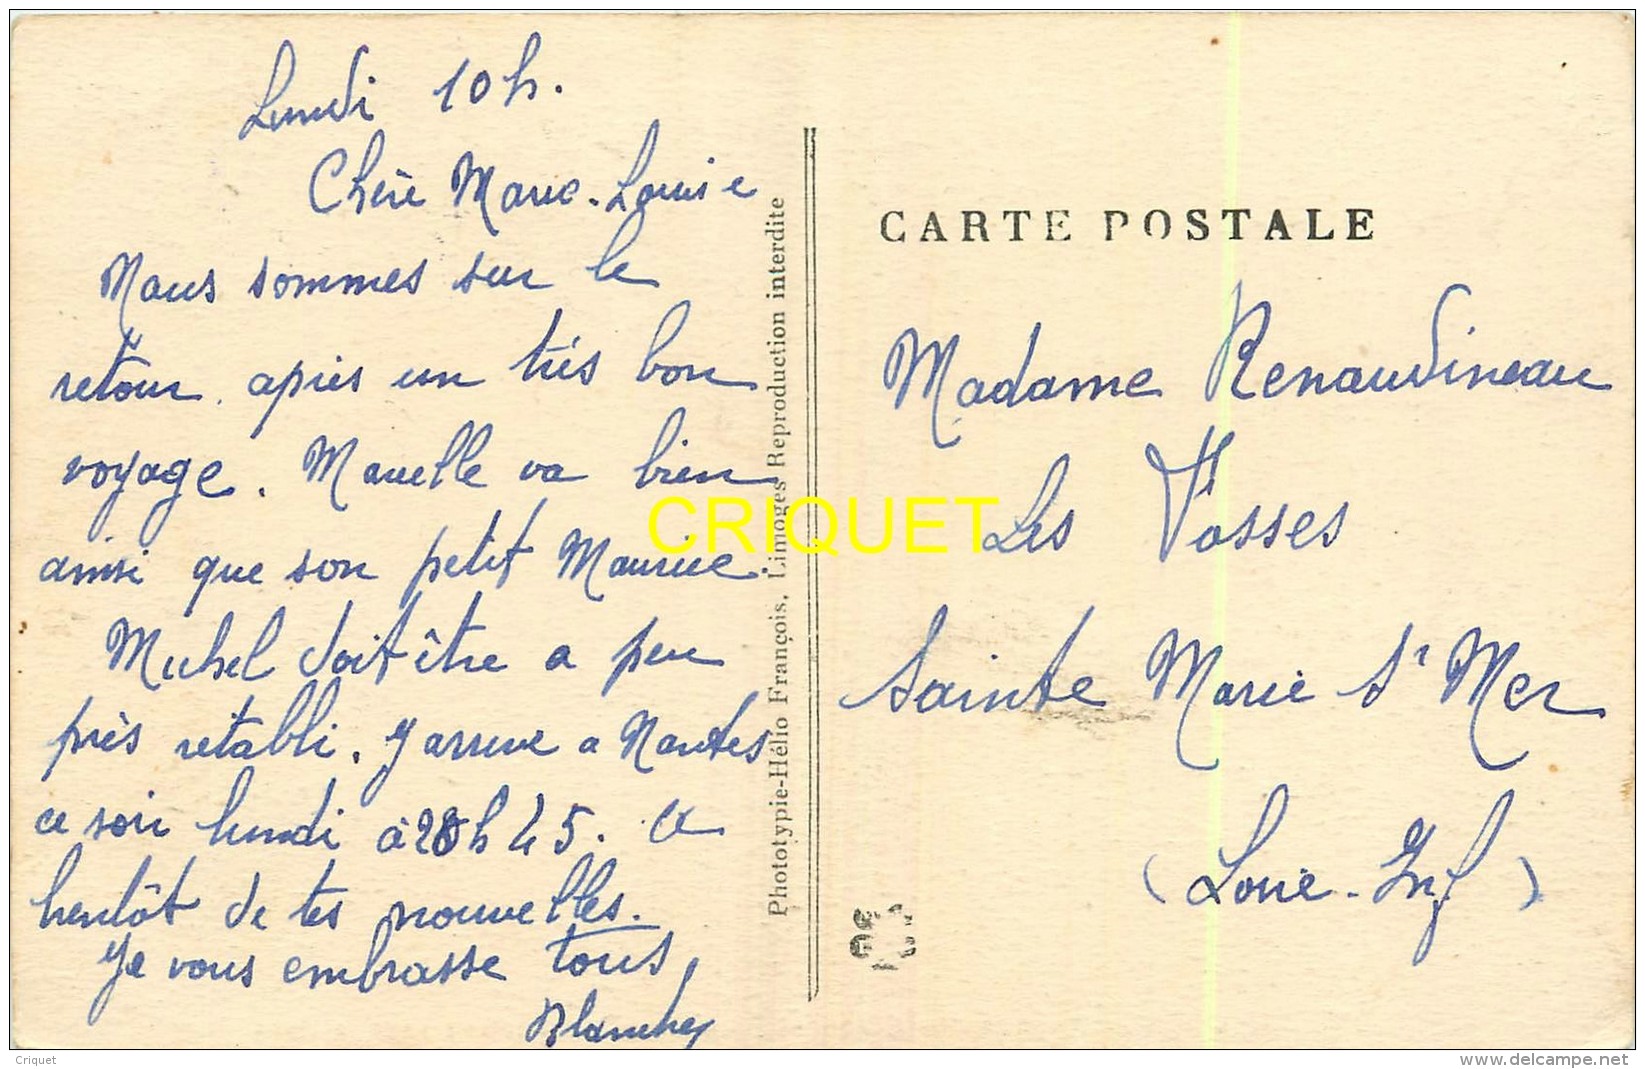 Lundi 10h.
Chère Marie-Louise
Nous sommes sur le
retour après un très bon
voyage. Marielle va bien
ainsi que son petit Maurice.
Michel doit être a peu
près rétabli. J'arrive a Nantes
ce soir lundi à h 45. a
bientôt de tes nouvelles.
Je vous embrasse tous
Blanche
Phototypie-Hélio François, Limoges Reproduction interdite
CARTE POSTALE
Madame Renaudineau
Les Fosses
Sainte Marie s/ Mer
(Loire-Inf)
CRIQUET
Criquet
www.delcampe.net